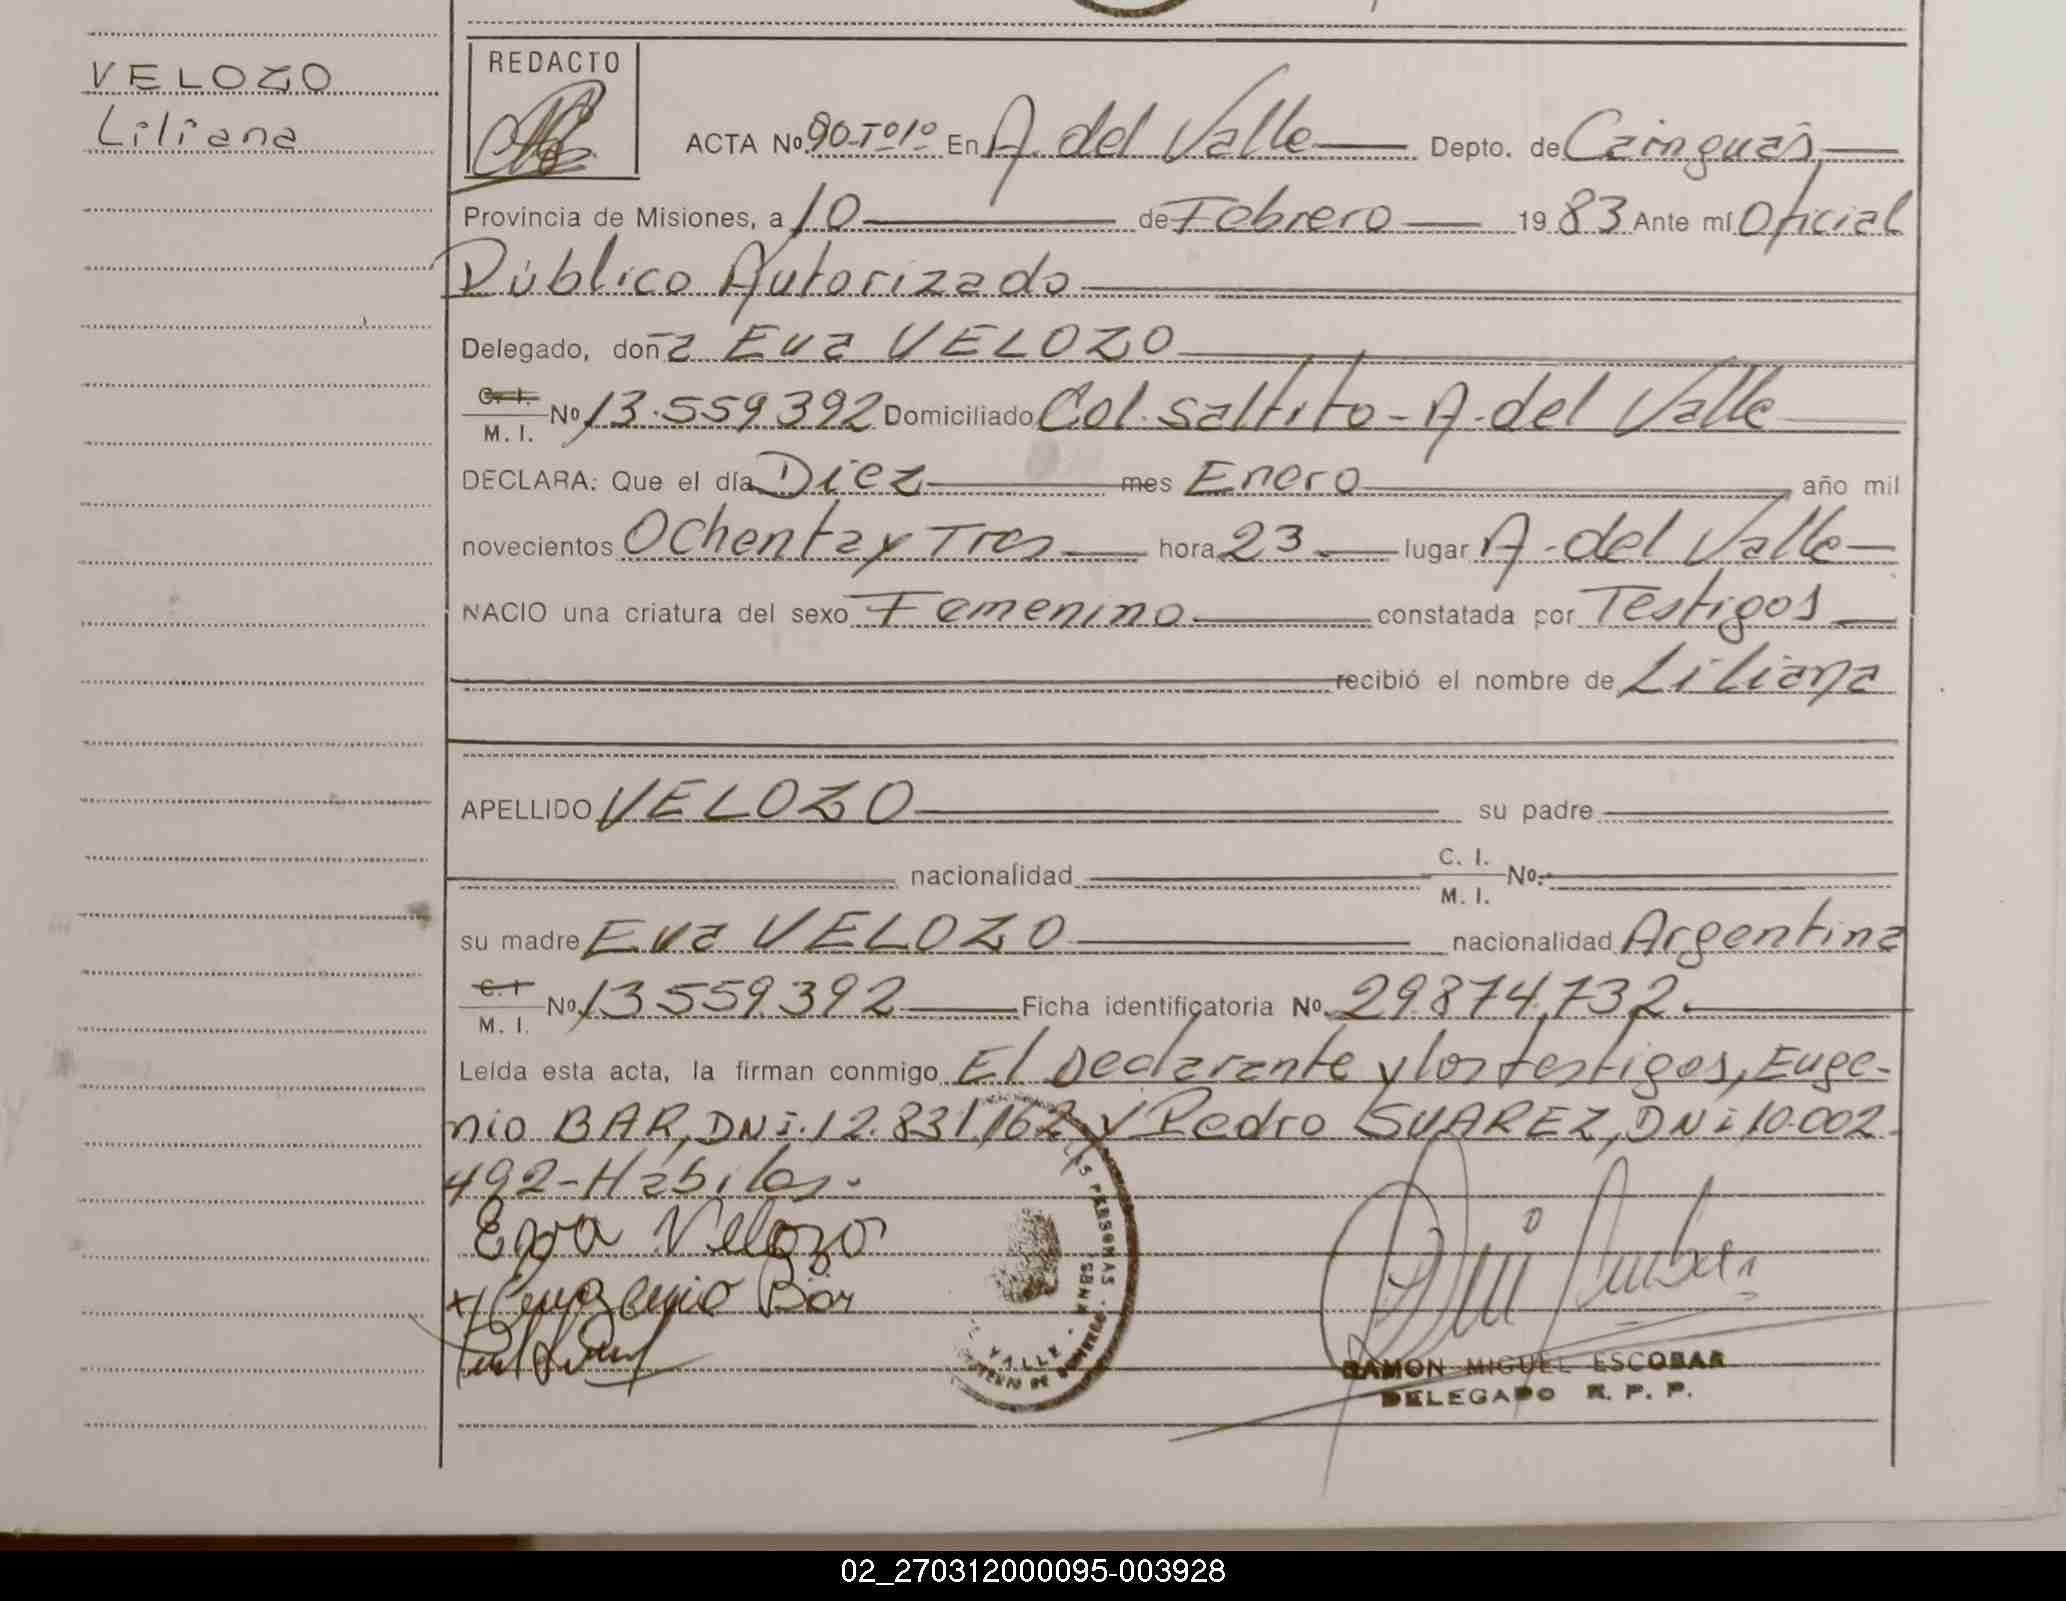 VELOZO
Liliana
REDACTO
ACTA No. 90-Tº1º En A. del Valle Depto. de Cainguás
Provincia de Misiones, a 10 de Febrero 1983 Ante mí Oficial
Público Autorizado
Delegado, doña Eva VELOZO
C. I.
M. I. No. 13.559.392 Domiciliado Col. Saltito - A. del Valle
DECLARA: Que el día Diez mes Enero año mil
novecientos Ochenta y Tres hora 23 lugar A. del Valle
NACIO una criatura del sexo Femenino constatada por Testigos
recibió el nombre de Liliana
APELLIDO VELOZO su padre
nacionalidad C. I.
M. I. No.
su madre Eva VELOZO nacionalidad Argentina
C. I
M. I. No. 13.559.392 Ficha identificatoria No. 29.874.732.
Leída esta acta, la firman conmigo El Declarante y los testigos, Euge-
nio BAR, DNi. 12.831.162 y Pedro SUAREZ, DNi 10.002
492-Hábiles.
Eva Velozo
x Eugenio Bar
PERSONAS
VALLE
RAMON MIGUEL ESCOBAR
DELEGADO R. P. P.
02_270312000095-003928